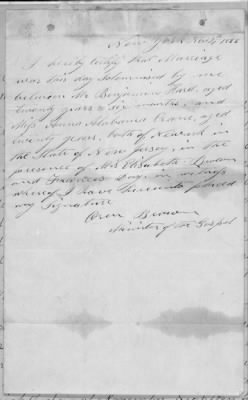 New York Nov 1
I hereby certify that Marriage
was this day Solemnized by me
between Mr Benjamin Ward, aged
twenty years & six months, and
Miss Anna Alabama Crane, aged
twenty years, both of Newark in
the State of New Jersey, in the
presence of Mrs Elizabeth
and Frances Day, in witness
whereof I have hereunto
my Signature
Brown
Minister of the Gospel